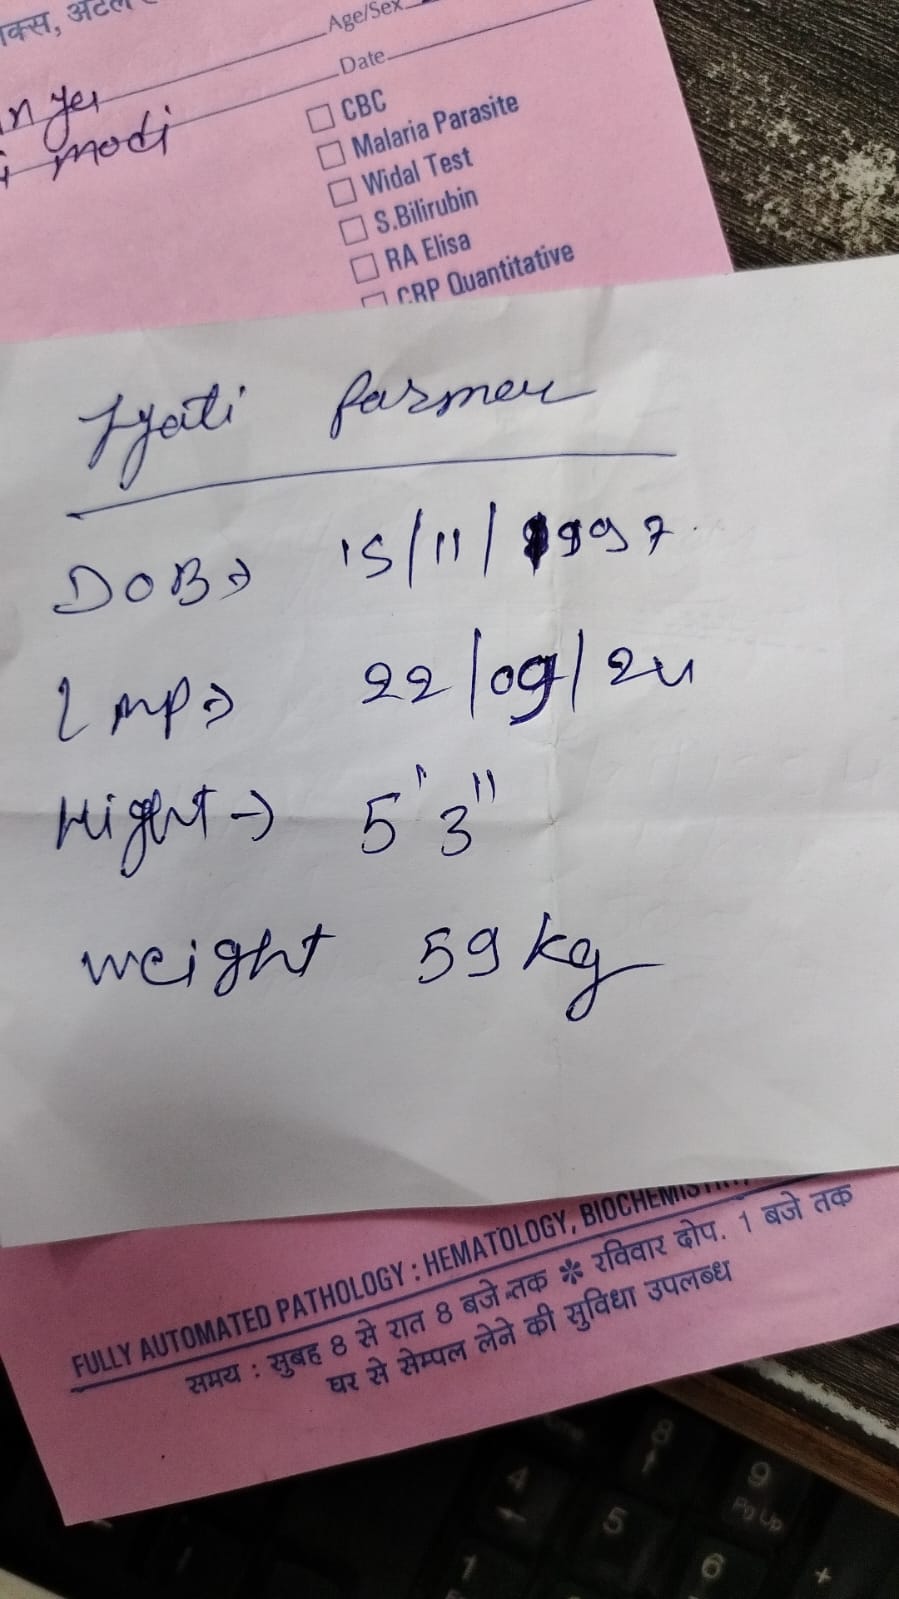 क्स, अटल
Age/Sex
Date
modi
CBC
Malaria Parasite
Widal Test
S.Bilirubin
RA Elisa
CRP Quantitative
Jyati Parmer
DOB→ 15/11/1997
LMP→ 22/09/24
Hight→ 5'3"
weight 59 kg
FULLY AUTOMATED PATHOLOGY : HEMATOLOGY, BIOCHEMISTRY,
समय : सुबह 8 से रात 8 बजे तक * रविवार दोप. 1 बजे तक
घर से सेम्पल लेने की सुविधा उपलब्ध
8
4
5
9
Pg Up
1
6
+